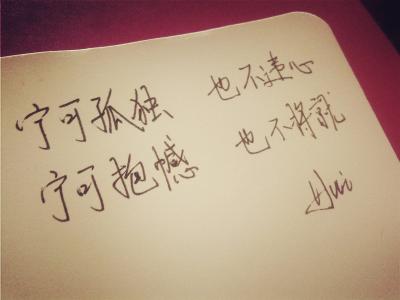 宁可孤独 也不违心
宁可抱憾 也不将就